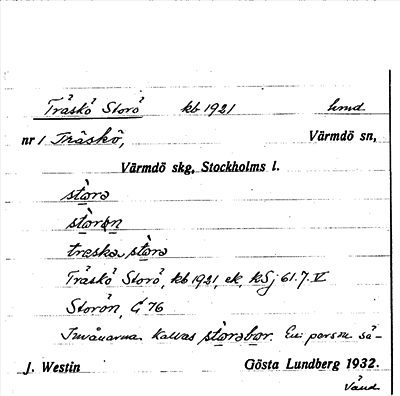 Träskö Storö kb 1921 hmd
nr 1 Träskö, Värmdö sn,
Värmdö skg, Stockholms l.
stora
storon
treska stora
Träskö Storö, kb 1921, ek. kSj 61.7.V
Storön, G 76
Invånarna kallas storabor. En person sä-
J. Westin Gösta Lundberg 1932.
vänd